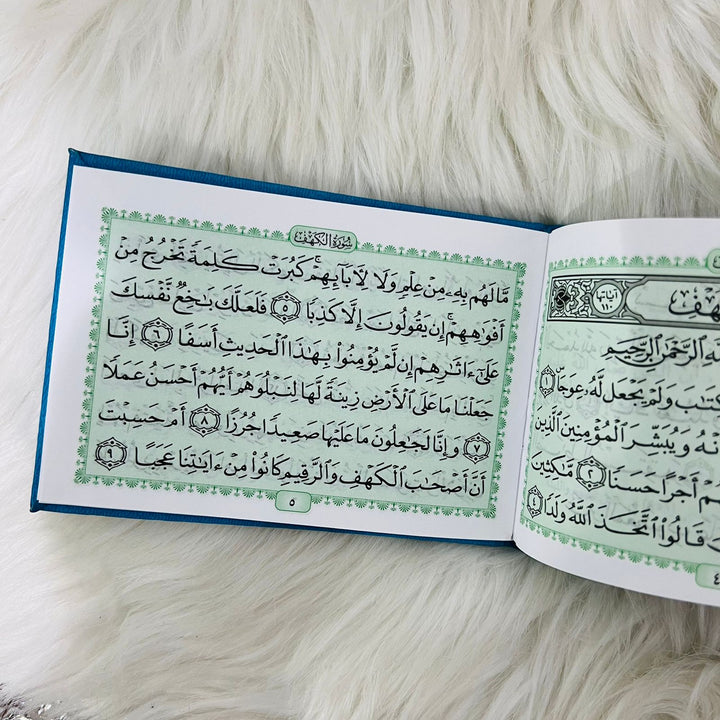 آيَاتُهَا ١١٠
ٱلرَّحْمَٰنِ ٱلرَّحِيمِ
وَلَمْ يَجْعَل لَّهُۥ عِوَجًا ۜ ١
وَيُبَشِّرَ ٱلْمُؤْمِنِينَ ٱلَّذِينَ
أَجْرًا حَسَنًا ٢ مَّٰكِثِينَ
قَالُوا۟ ٱتَّخَذَ ٱللَّهُ وَلَدًا ٤
٤
سُورَةُ الكَهْفِ
مَّا لَهُم بِهِۦ مِنْ عِلْمٍ وَلَا لِـَٔابَآئِهِمْ ۚ كَبُرَتْ كَلِمَةً تَخْرُجُ مِنْ
أَفْوَٰهِهِمْ ۚ إِن يَقُولُونَ إِلَّا كَذِبًا ٥ فَلَعَلَّكَ بَٰخِعٌ نَّفْسَكَ
عَلَىٰٓ ءَاثَٰرِهِمْ إِن لَّمْ يُؤْمِنُوا۟ بِهَٰذَا ٱلْحَدِيثِ أَسَفًا ٦ إِنَّا
جَعَلْنَا مَا عَلَى ٱلْأَرْضِ زِينَةً لَّهَا لِنَبْلُوَهُمْ أَيُّهُمْ أَحْسَنُ عَمَلًا
٧ وَإِنَّا لَجَٰعِلُونَ مَا عَلَيْهَا صَعِيدًا جُرُزًا ٨ أَمْ حَسِبْتَ
أَنَّ أَصْحَٰبَ ٱلْكَهْفِ وَٱلرَّقِيمِ كَانُوا۟ مِنْ ءَايَٰتِنَا عَجَبًا ٩
٥